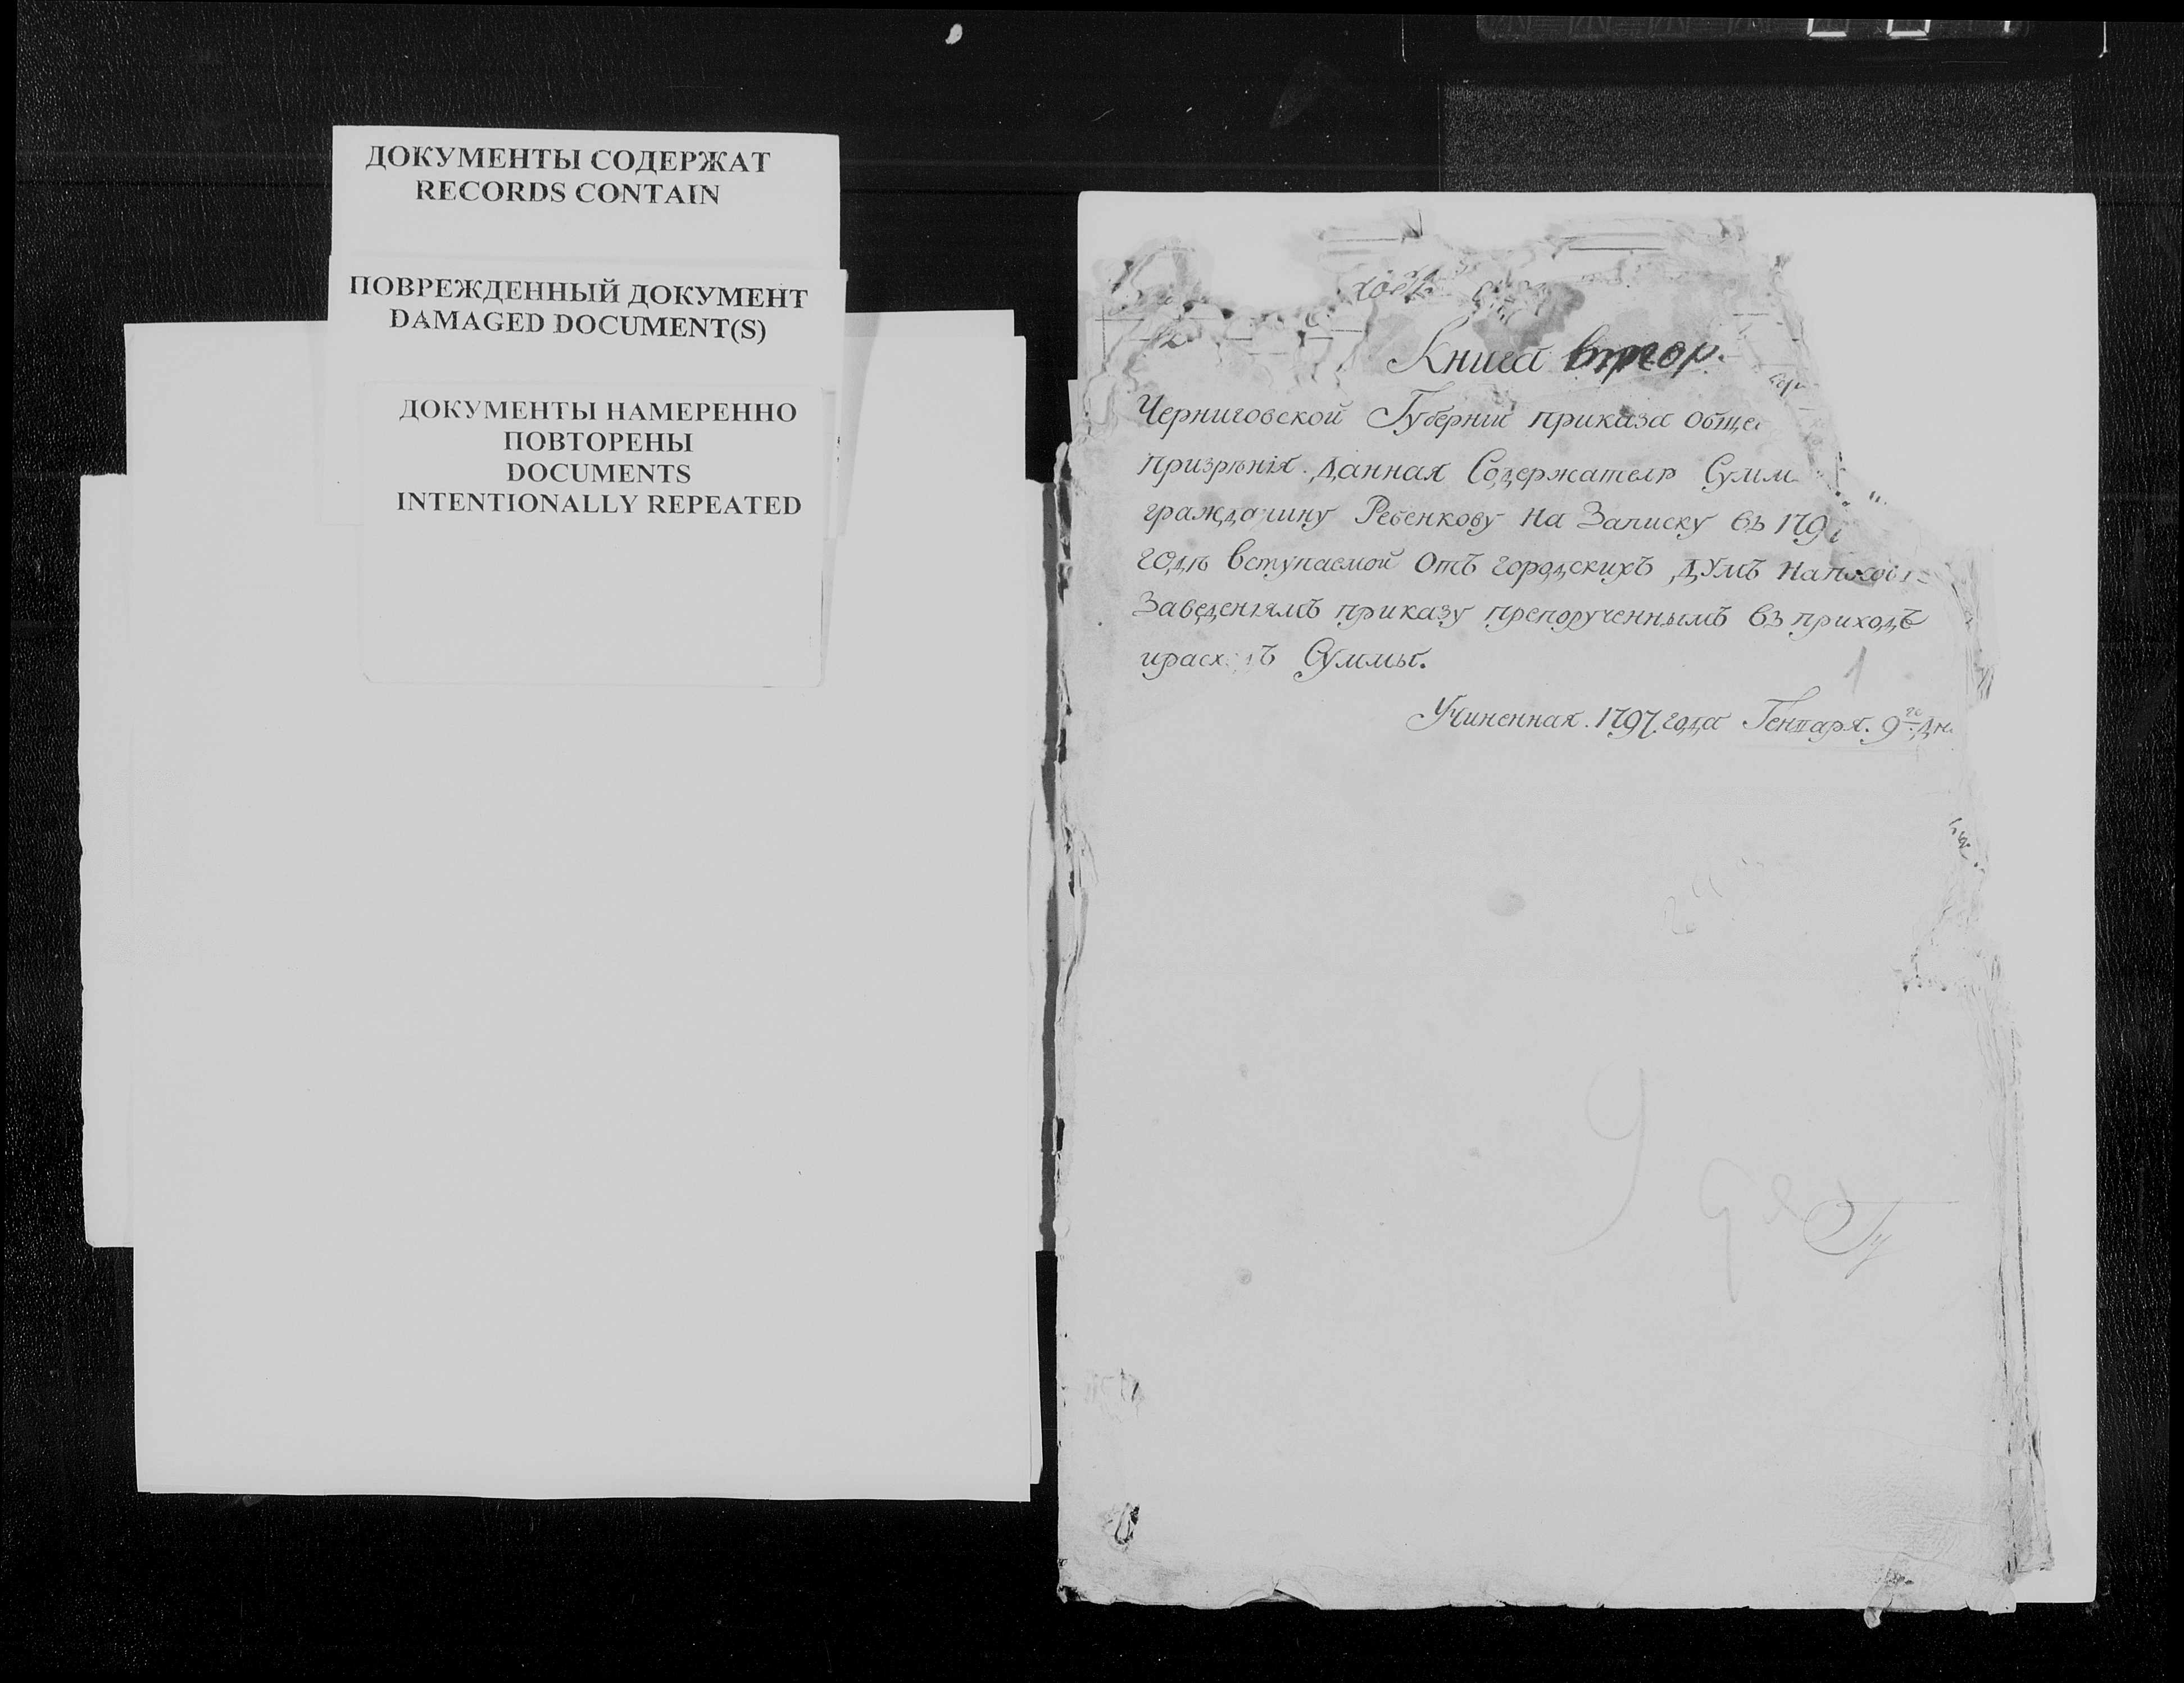 ДОКУМЕНТЫ СОДЕРЖАТ
RECORDS CONTAIN
ПОВРЕЖДЕННЫЙ ДОКУМЕНТ
DAMAGED DOCUMENT(S)
ДОКУМЕНТЫ НАМЕРЕННО
ПОВТОРЕНЫ
DOCUMENTS
INTENTIONALLY REPEATED
Книга втор.
Черниговской Губернии приказа обще
призрѣнія. данная Содержателю Сумм
гражданину Ребенкову на Записку въ 179
годѣ вступаемой Отъ городскихъ думъ
Заведеніямъ приказу препорученнымъ въ приходѣ
ирасходъ Суммы.
1
Учиненная. 1797 года Генваря. 9го дн.